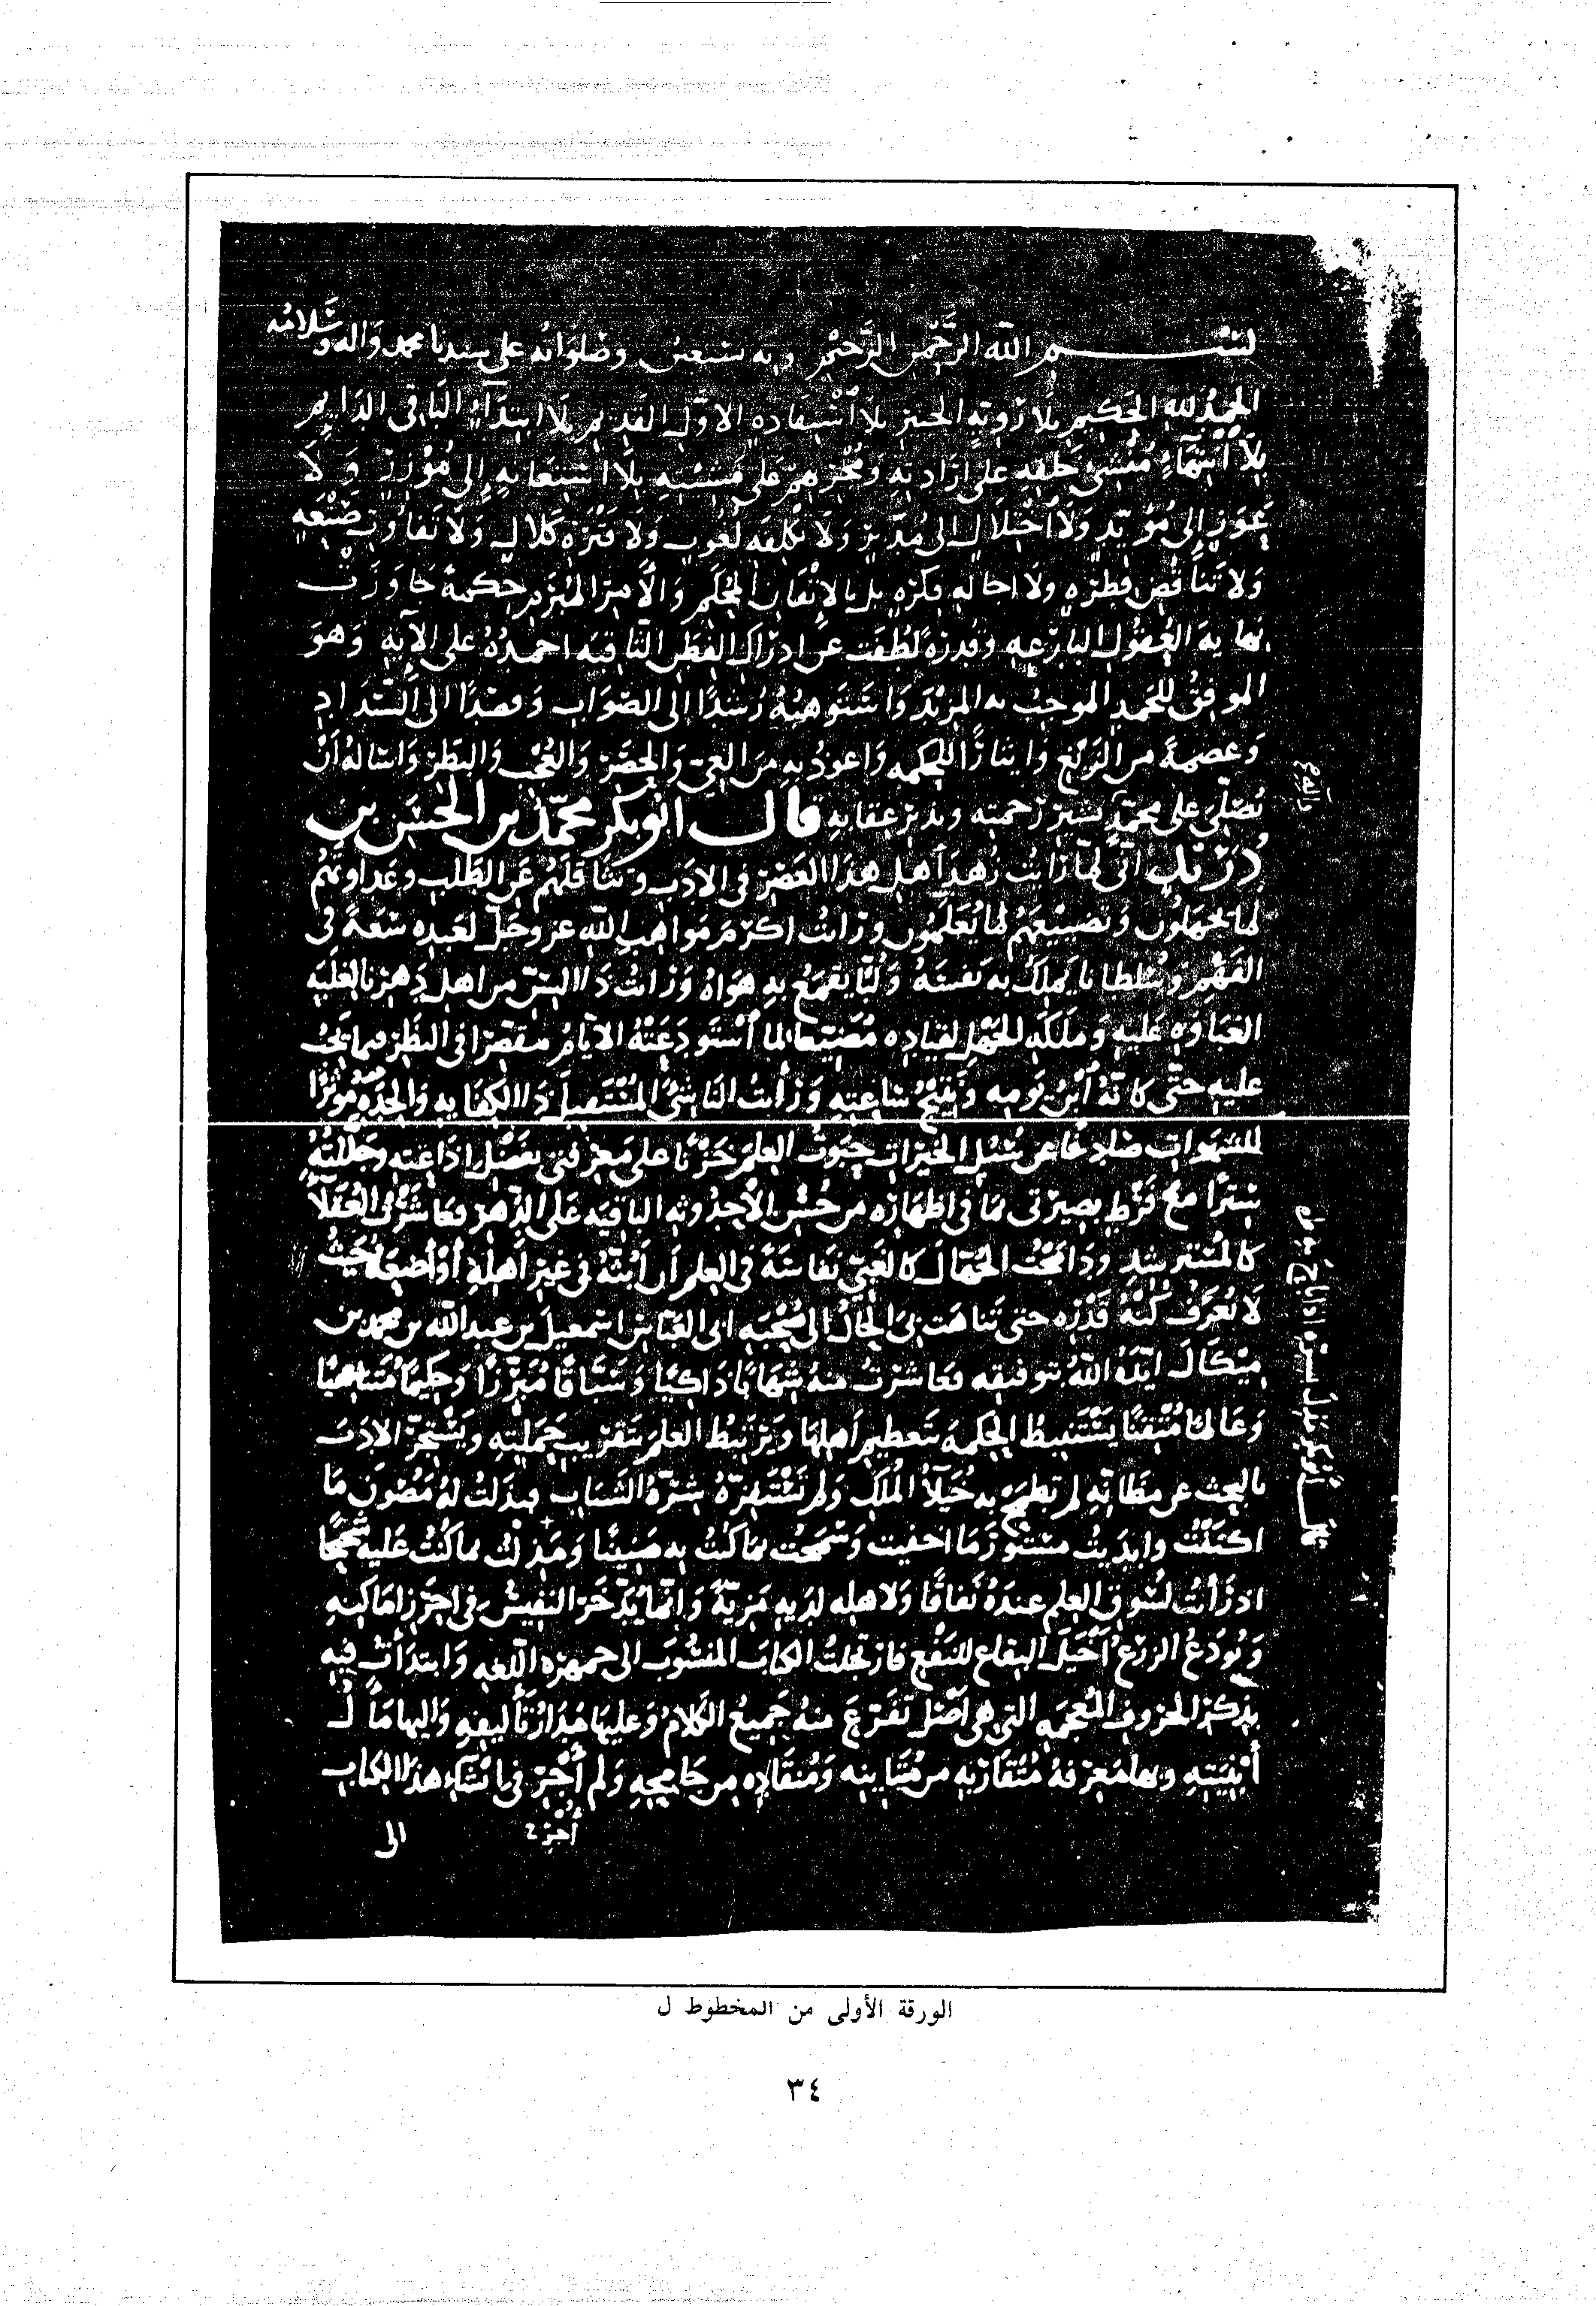 بسم الله الرحمن الرحيم وبه نستعين وصلواته على سيدنا محمد واله وسلامه
الحمد لله الحكيم بلا روية الخبير بلا استفادة الاول القديم بلا ابتداء الباقي الدايم
بلا انتهاء منشئ خلقه على ارادته ومجريهم على مشيته بلا استعانة الى مؤزر ولا
عوز الى مؤيد ولا اختلال الى مدبر ولا تكلفه لغوب ولا فترة كلال ولا تفاوت صنعه
ولا تناقض فطره ولا اجالة فكره بل بالاتقان المحكم والامر المبرم حكمة جاوزت
نهاية العقول البارعه وقدرة لطفت عن ادراك الفطن الثاقبه احمده على الآيه وهو
الموفق للحمد الموجب به المزيد واستوهبه رشدا الى الصواب وقصدا الى السداد
وعصمة من الزيغ وايثارا للحكمه واعوذ به من العي والحصر والعجب والبطر واساله ان
يصلي على محمد بشير رحمته ونذير عقابه قال ابو بكر محمد بن الحسن بن
دريد اني لما رايت زهد اهل هذا العصر في الادب وتثاقلهم عن الطلب وعداوتهم
لما يجهلون وتضييعهم لما يعلمون ورايت اكرم مواهب الله عز وجل لعبده سعة في
الفهم وسلطانا يملك به نفسه ولبا يقمع به هواه ورايت ذا السن من اهل دهرنا لغلبه
الغباوه عليه وملكه الجهل لقياده مضيعا لما استودعته الايام مقصرا في النظر فيما يجب
عليه حتى كانه ابن يومه ونتيج ساعته ورايت الناشئ المستقبل ذا الكفايه والجده مؤثرا
للشهوات صادفا عن سبل الخيرات حبوت العلم خزنا على معرفتي بفضل اذاعته وجللته
سترا مع فرط بصيرتي بما في اظهاره من حسن الاحدوثه الباقيه على الدهر فعاشرت العقلاء
كالمسترشد ودامجت الجهال كالغبي نفاسة في العلم ان ابثه في غير اهله او اضعه بحيث
لا يعرف كنه قدره حتى تناهت بي الحال الى صحبه ابي العباس اسمعيل بن عبد الله بن محمد بن
ميكال ايده الله بتوفيقه فعاشرت منه شهابا ذاكيا وسباقا مبرزا وحكيما متناهيا
وعالما متقنا يستنبط الحكمة بتعظيم اهلها ويرتبط العلم بتقريب حملته ويستجر الادب
بالبحث عن مظانه لم تطمح به خيلاء الملك ولم تستفزه شرة الشباب فبذلت له مصون ما
اكننت وابديت مستور ما اخفيت وسمحت بما كنت به ضنينا ومذلت بما كنت عليه شحيحا
اذ رأيت لسوق العلم عنده نفاقا ولاهله لديه مزية وانما يدخر النفيس في احرز اماكنه
ويودع الزرع اخيل البقاع للنفع فارتجلت الكتاب المنسوب الى جمهره اللغه وابتدأت فيه
بذكر الحروف المعجمه التي هي اصل تفرع منه جميع الكلام وعليها مدار تأليفه واليها مال
أبنيته وبها معرفة متقاربه من متباينه ومنقاده من جامحه ولم أجر في انشاء هذا الكتاب
أجرِ
الى
الورقة الأولى من المخطوط ل
٣٤